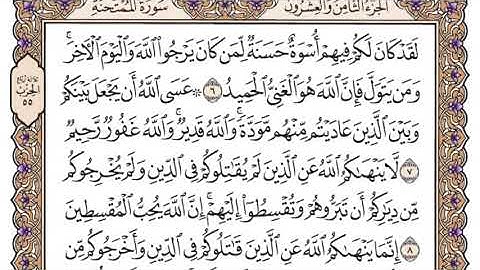 الجزء الثامن والعشرون
سورة الممتحنة
لَقَدْ كَانَ لَكُمْ فِيهِمْ أُسْوَةٌ حَسَنَةٌ لِّمَن كَانَ يَرْجُوا۟ ٱللَّهَ وَٱلْيَوْمَ ٱلْـَٔاخِرَ ۚ
وَمَن يَتَوَلَّ فَإِنَّ ٱللَّهَ هُوَ ٱلْغَنِىُّ ٱلْحَمِيدُ ٦ ۞ عَسَى ٱللَّهُ أَن يَجْعَلَ بَيْنَكُمْ
وَبَيْنَ ٱلَّذِينَ عَادَيْتُم مِّنْهُم مَّوَدَّةً ۚ وَٱللَّهُ قَدِيرٌ ۚ وَٱللَّهُ غَفُورٌ رَّحِيمٌ
٧ لَّا يَنْهَىٰكُمُ ٱللَّهُ عَنِ ٱلَّذِينَ لَمْ يُقَٰتِلُوكُمْ فِى ٱلدِّينِ وَلَمْ يُخْرِجُوكُم
مِّن دِيَٰرِكُمْ أَن تَبَرُّوهُمْ وَتُقْسِطُوٓا۟ إِلَيْهِمْ ۚ إِنَّ ٱللَّهَ يُحِبُّ ٱلْمُقْسِطِينَ
٨ إِنَّمَا يَنْهَىٰكُمُ ٱللَّهُ عَنِ ٱلَّذِينَ قَٰتَلُوكُمْ فِى ٱلدِّينِ وَأَخْرَجُوكُم مِّن
الحزب
٥٥